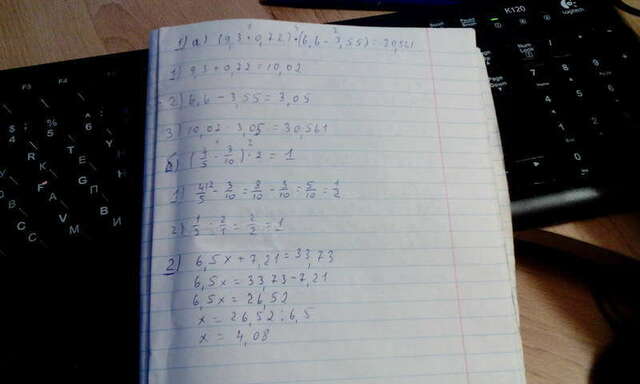 1) а) (9,3 + 0,72) · (6,6 - 3,55) = 30,561
1) 9,3 + 0,72 = 10,02
2) 6,6 - 3,55 = 3,05
3) 10,02 · 3,05 = 30,561
б) (4/5 - 3/10) · 2 = 1
1) 4/5 - 3/10 = 8/10 - 3/10 = 5/10 = 1/2
2) 1/2 · 2/1 = 2/2 = 1
2) 6,5x + 7,21 = 33,73
6,5x = 33,73 - 7,21
6,5x = 26,52
x = 26,52 : 6,5
x = 4,08
K120
Logitech